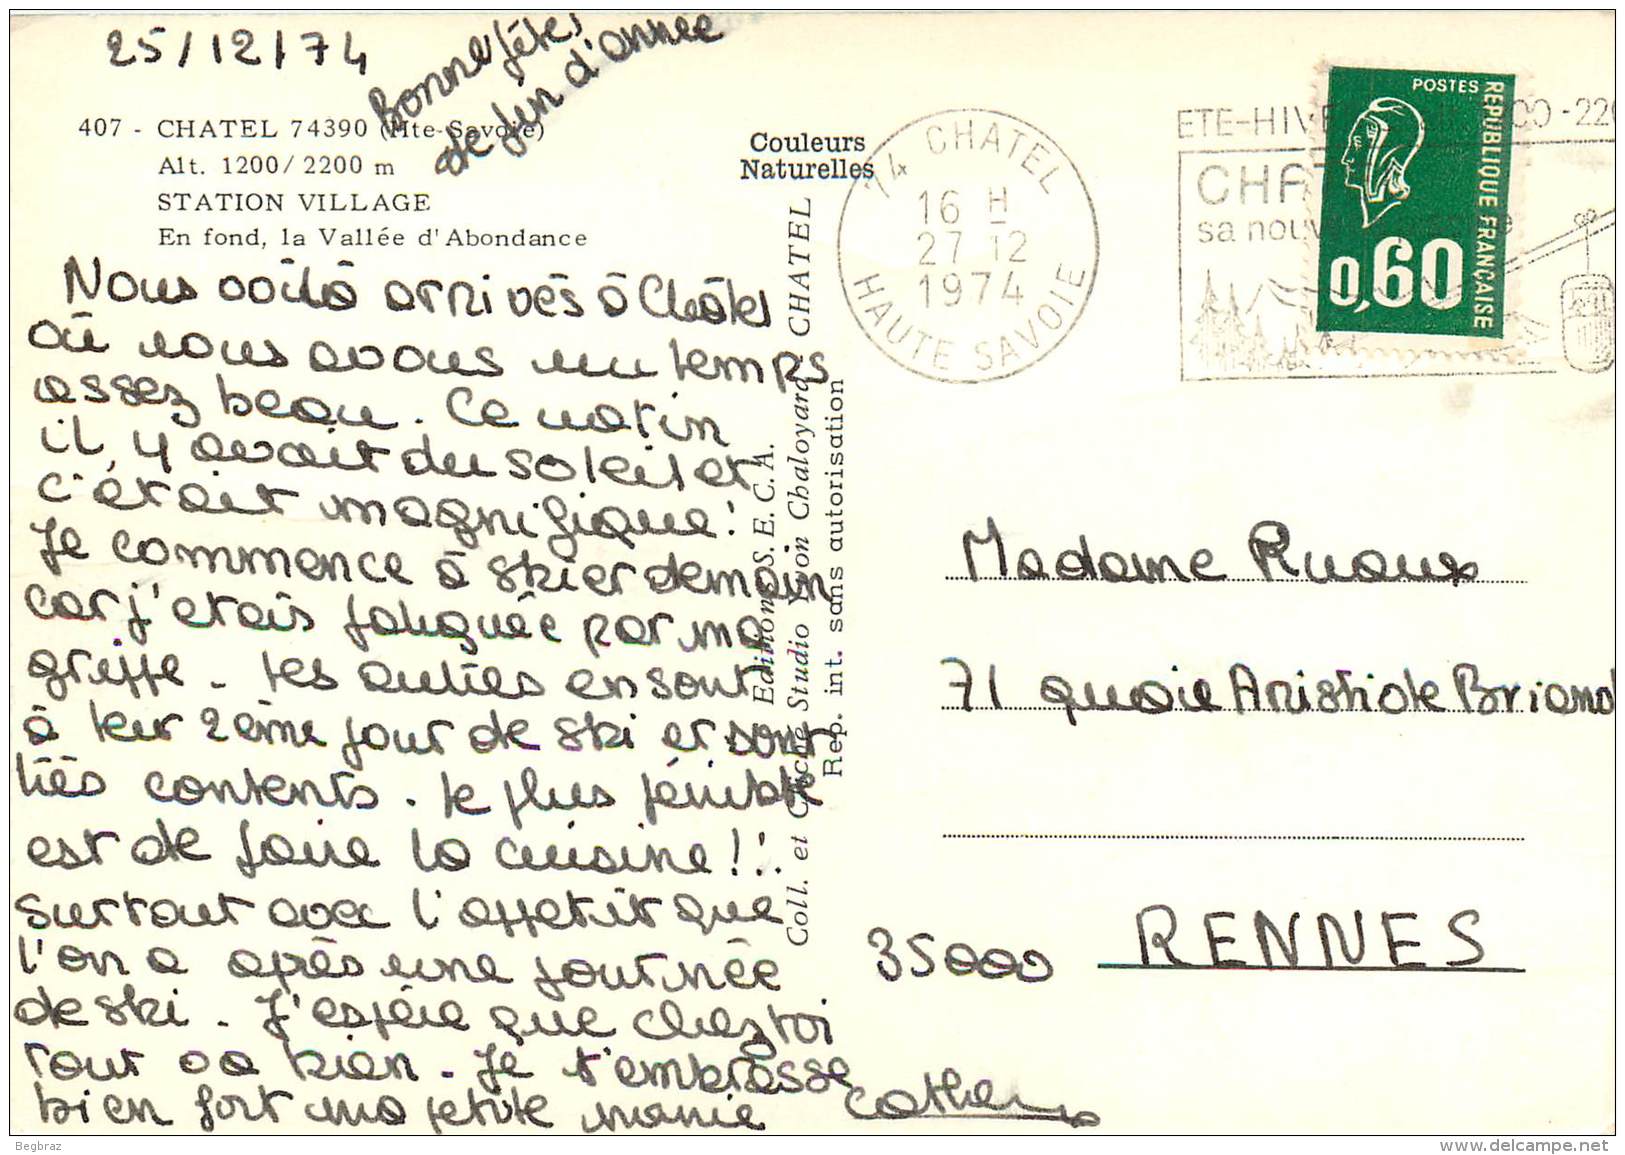 25/12/74
bonne fêtes
de fin d'année
407 - CHATEL 74390 (Hte-Savoie)
Alt. 1200/2200 m
STATION VILLAGE
En fond, la Vallée d'Abondance
Nous voilà arrivés à Châtel
où nous avons un temps
assez beau. Ce matin
il y avait du soleil et
c'était magnifique!
Je commence à skier demain
car j'étais fatiguée par ma
grippe. Les autres en sont
à leur 2ème jour de ski et sont
très contents. Le plus pénible
est de faire la cuisine!!
surtout avec l'appétit que
l'on a après une journée
de ski. J'espère que chez toi
tout va bien. Je t'embrasse
bien fort ma petite mamie
Couleurs
Naturelles
Editions S.E.C.A. CHATEL
Coll. et Cliché Studio Yvon Chaloyard
Rep. int. sans autorisation
74 CHATEL
16 H
27 12
1974
HAUTE SAVOIE
ETE-HIV
CHA
sa nouv
POSTES
REPUBLIQUE FRANÇAISE
0,60
Madame Ruaux
71 quaie Aristide Briand
35000 RENNES
Begbraz
www.delcampe.net